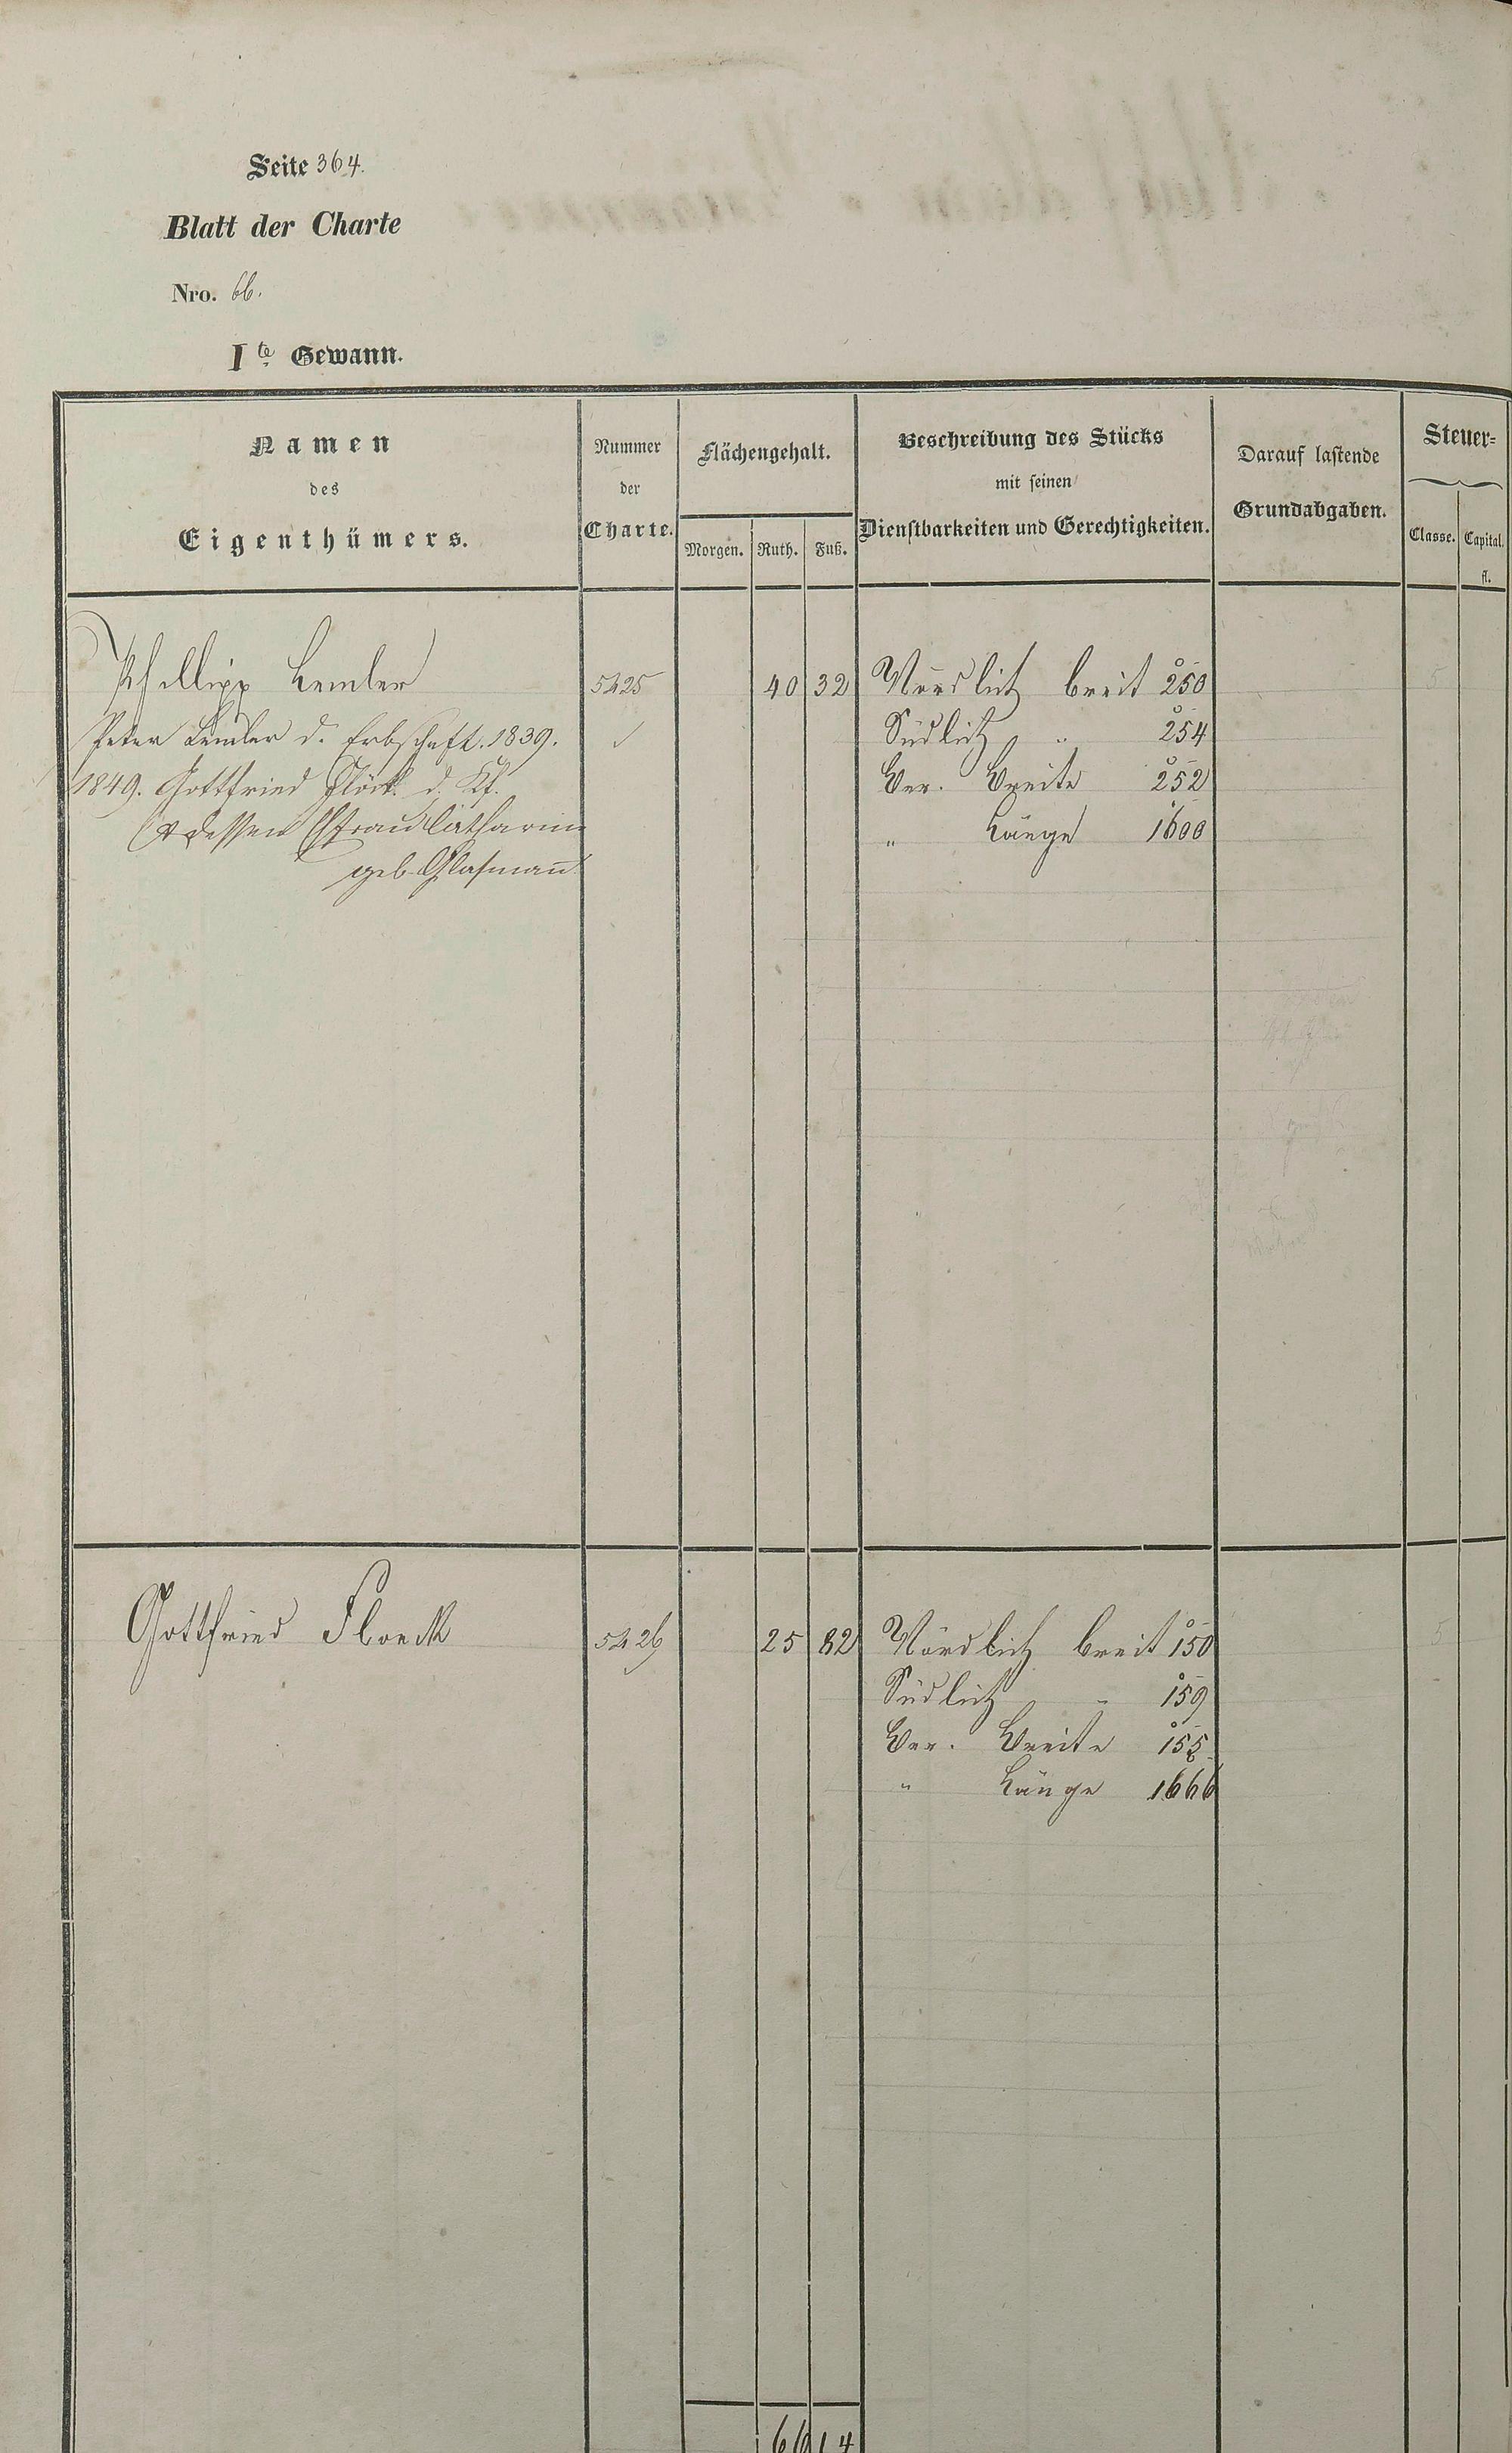 Seite 364.
Blatt der Charte
Nro. 66.
Ite Gewann.
Namen
des
Eigenthümers.
Nummer
der
Charte.
Flächengehalt.
Morgen. Ruth. Fuß.
Beschreibung des Stücks
mit seinen
Dienstbarkeiten und Gerechtigkeiten.
Darauf lastende
Grundabgaben.
Steuer-
Classe. Capital.
fl.
Phillipp Lemler 5425 40 32 Nördlich breit 250 5
Peter Lemler d. Erbschaft. 1839. Südlich " 254
1849. Gottfried Flöck d. Kf. Ver. Breite 252
dessen Ehfrau Catharina " Länge 1600
geb. Glasmann
Gottfried Floeck 5426 25 82 Nördlich breit 150 5
Südlich " 159
Ver. Breite 155
" Länge 1666
66 14